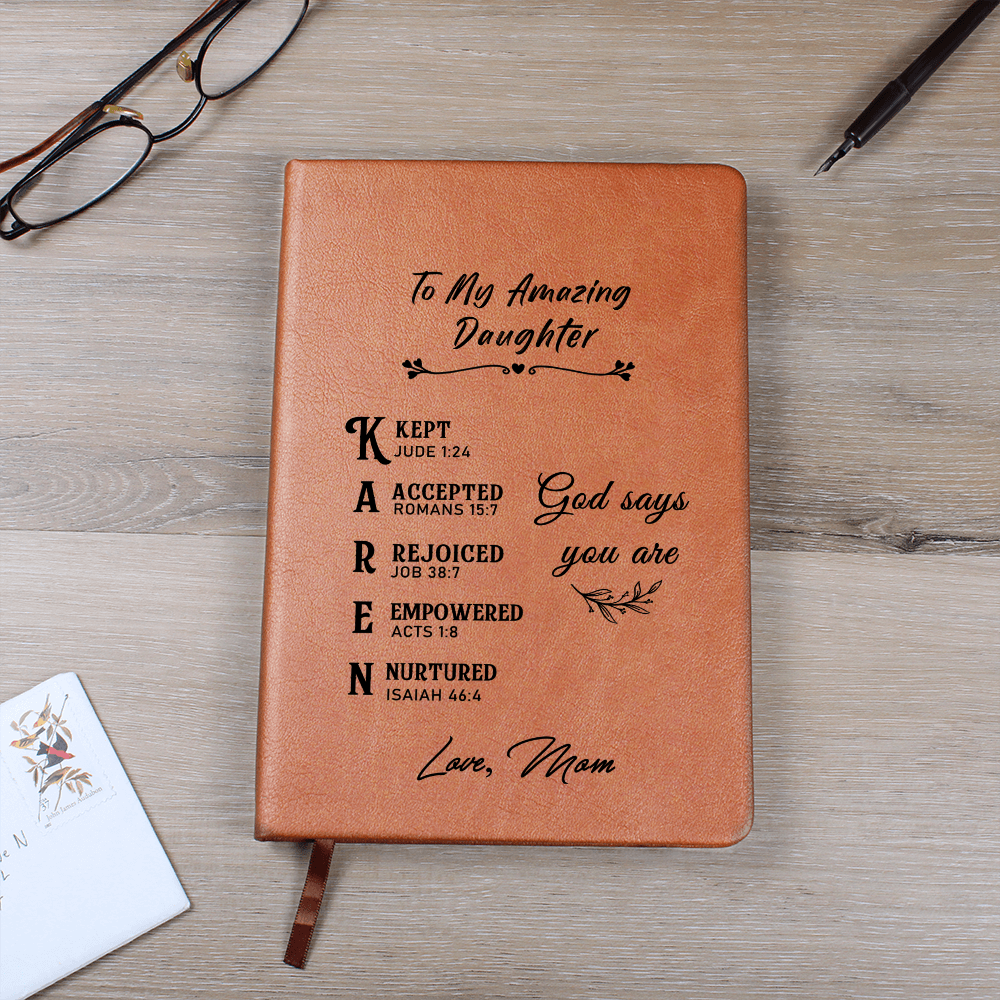 To My Amazing
Daughter
K KEPT
JUDE 1:24
A ACCEPTED
ROMANS 15:7
R REJOICED
JOB 38:7
E EMPOWERED
ACTS 1:8
N NURTURED
ISAIAH 46:4
God says
you are
Love, Mom
37
John James Audubon
N
L